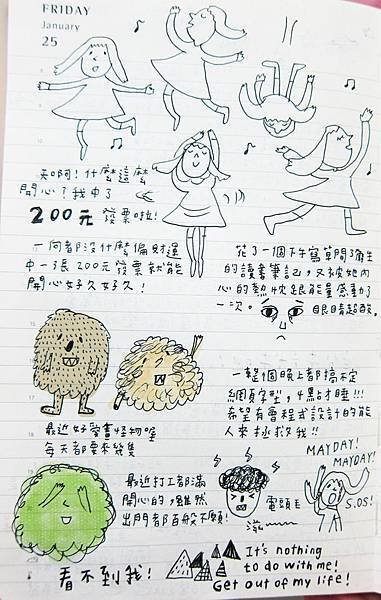 FRIDAY
January
25
天啊！什麼這麼
開心？我中了
200元發票啦！
一向都沒什麼偏財運
中一張200元發票就能
開心好久好久！
花了一個下午寫草間彌生
的讀書筆記，又被她內
心的熱忱跟能量感動了
一次。
眼睛超酸。
最近好愛畫怪物喔
每天都要來幾隻
一整個晚上都搞不定
網頁字型，4點才睡!!!
希望有會程式設計的能
人來拯救我!!
MAYDAY!
MAYDAY!
S.OS!
最近打工都滿
開心的，雖然
出門者都百般不願！
電頭毛
滋~~
看不到我！
It's nothing
to do with me!
Get out of my life!